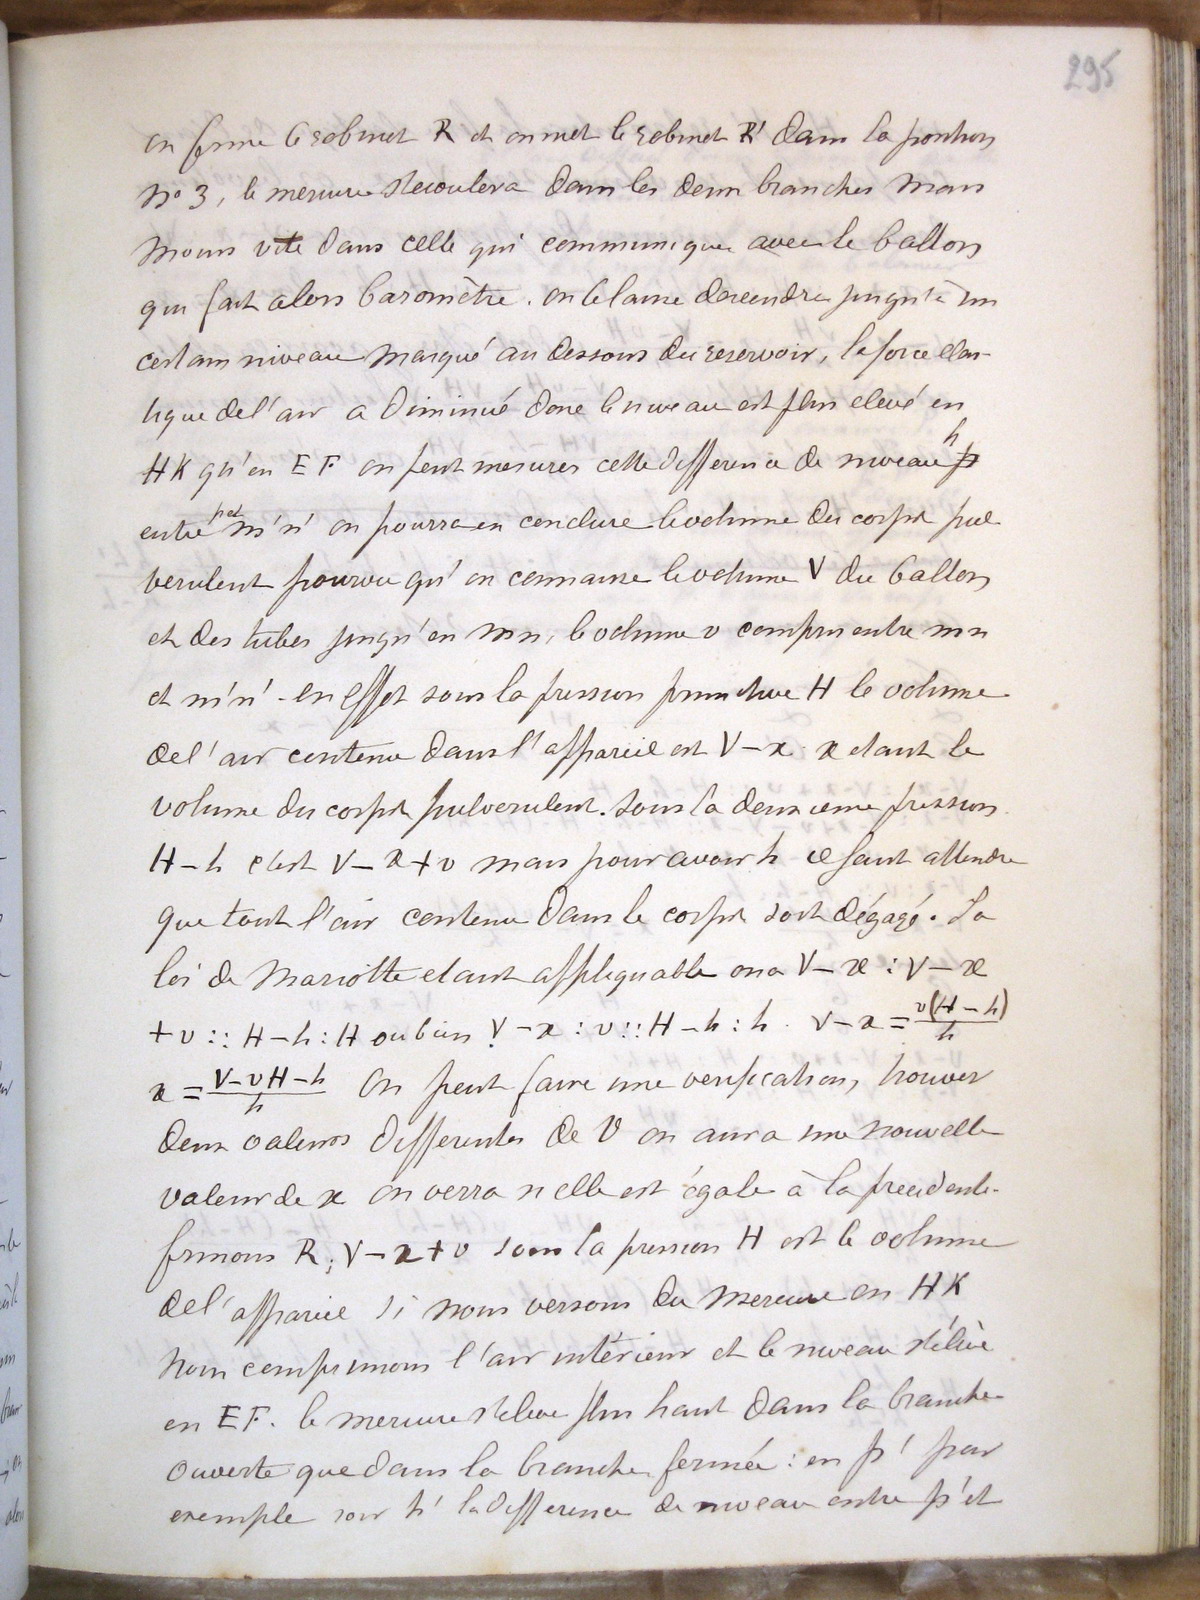 295
on ferme le robinet R et on met le robinet R' dans la position
No 3, le mercure s'ecoulera dans les deux branches mais
moins vite dans celle qui communique avec le ballon
qui fait alors baromètre. on le laisse descendre jusqu'à un
certain niveau marqué au dessous du reservoir, la force élas-
tique de l'air a diminué donc le niveau est plus elevé en
HK qu'en EF on peut mesurer cette difference de niveau h
entre p et m'n' on pourra en conclure le volume du corps pul
verulent pourvu qu'on connaisse le volume V du ballon
et des tubes jusqu'en mn, le volume v compris entre mn
et m'n' - en effet sous la pression primitive H le volume
de l'air contenu dans l'appareil est V-x x etant le
volume du corps pulverulent. Sous la deuxieme pression
H-h c'est V-x+v mais pour avoir h il faut attendre
que tout l'air contenu dans le corps soit dégagé. La
loi de Mariotte etant appliquable on a V-x : V-x
+v :: H-h : H ou bien V-x : v :: H-h : h. V-x = v(H-h)/h
x = V-vH-h/h On peut faire une verification, trouver
deux valeurs differentes de V on aura une nouvelle
valeur de x on verra si elle est égale à la precedente.
fermons R, V-x+v sous la pression H est le volume
de l'appareil si nous versons du mercure en HK
nous comprimons l'air intérieur et le niveau s'élève
en EF. le mercure s'eleve plus haut dans la branche
ouverte que dans la branche fermée : en p' par
exemple soit h' la difference de niveau entre p' et